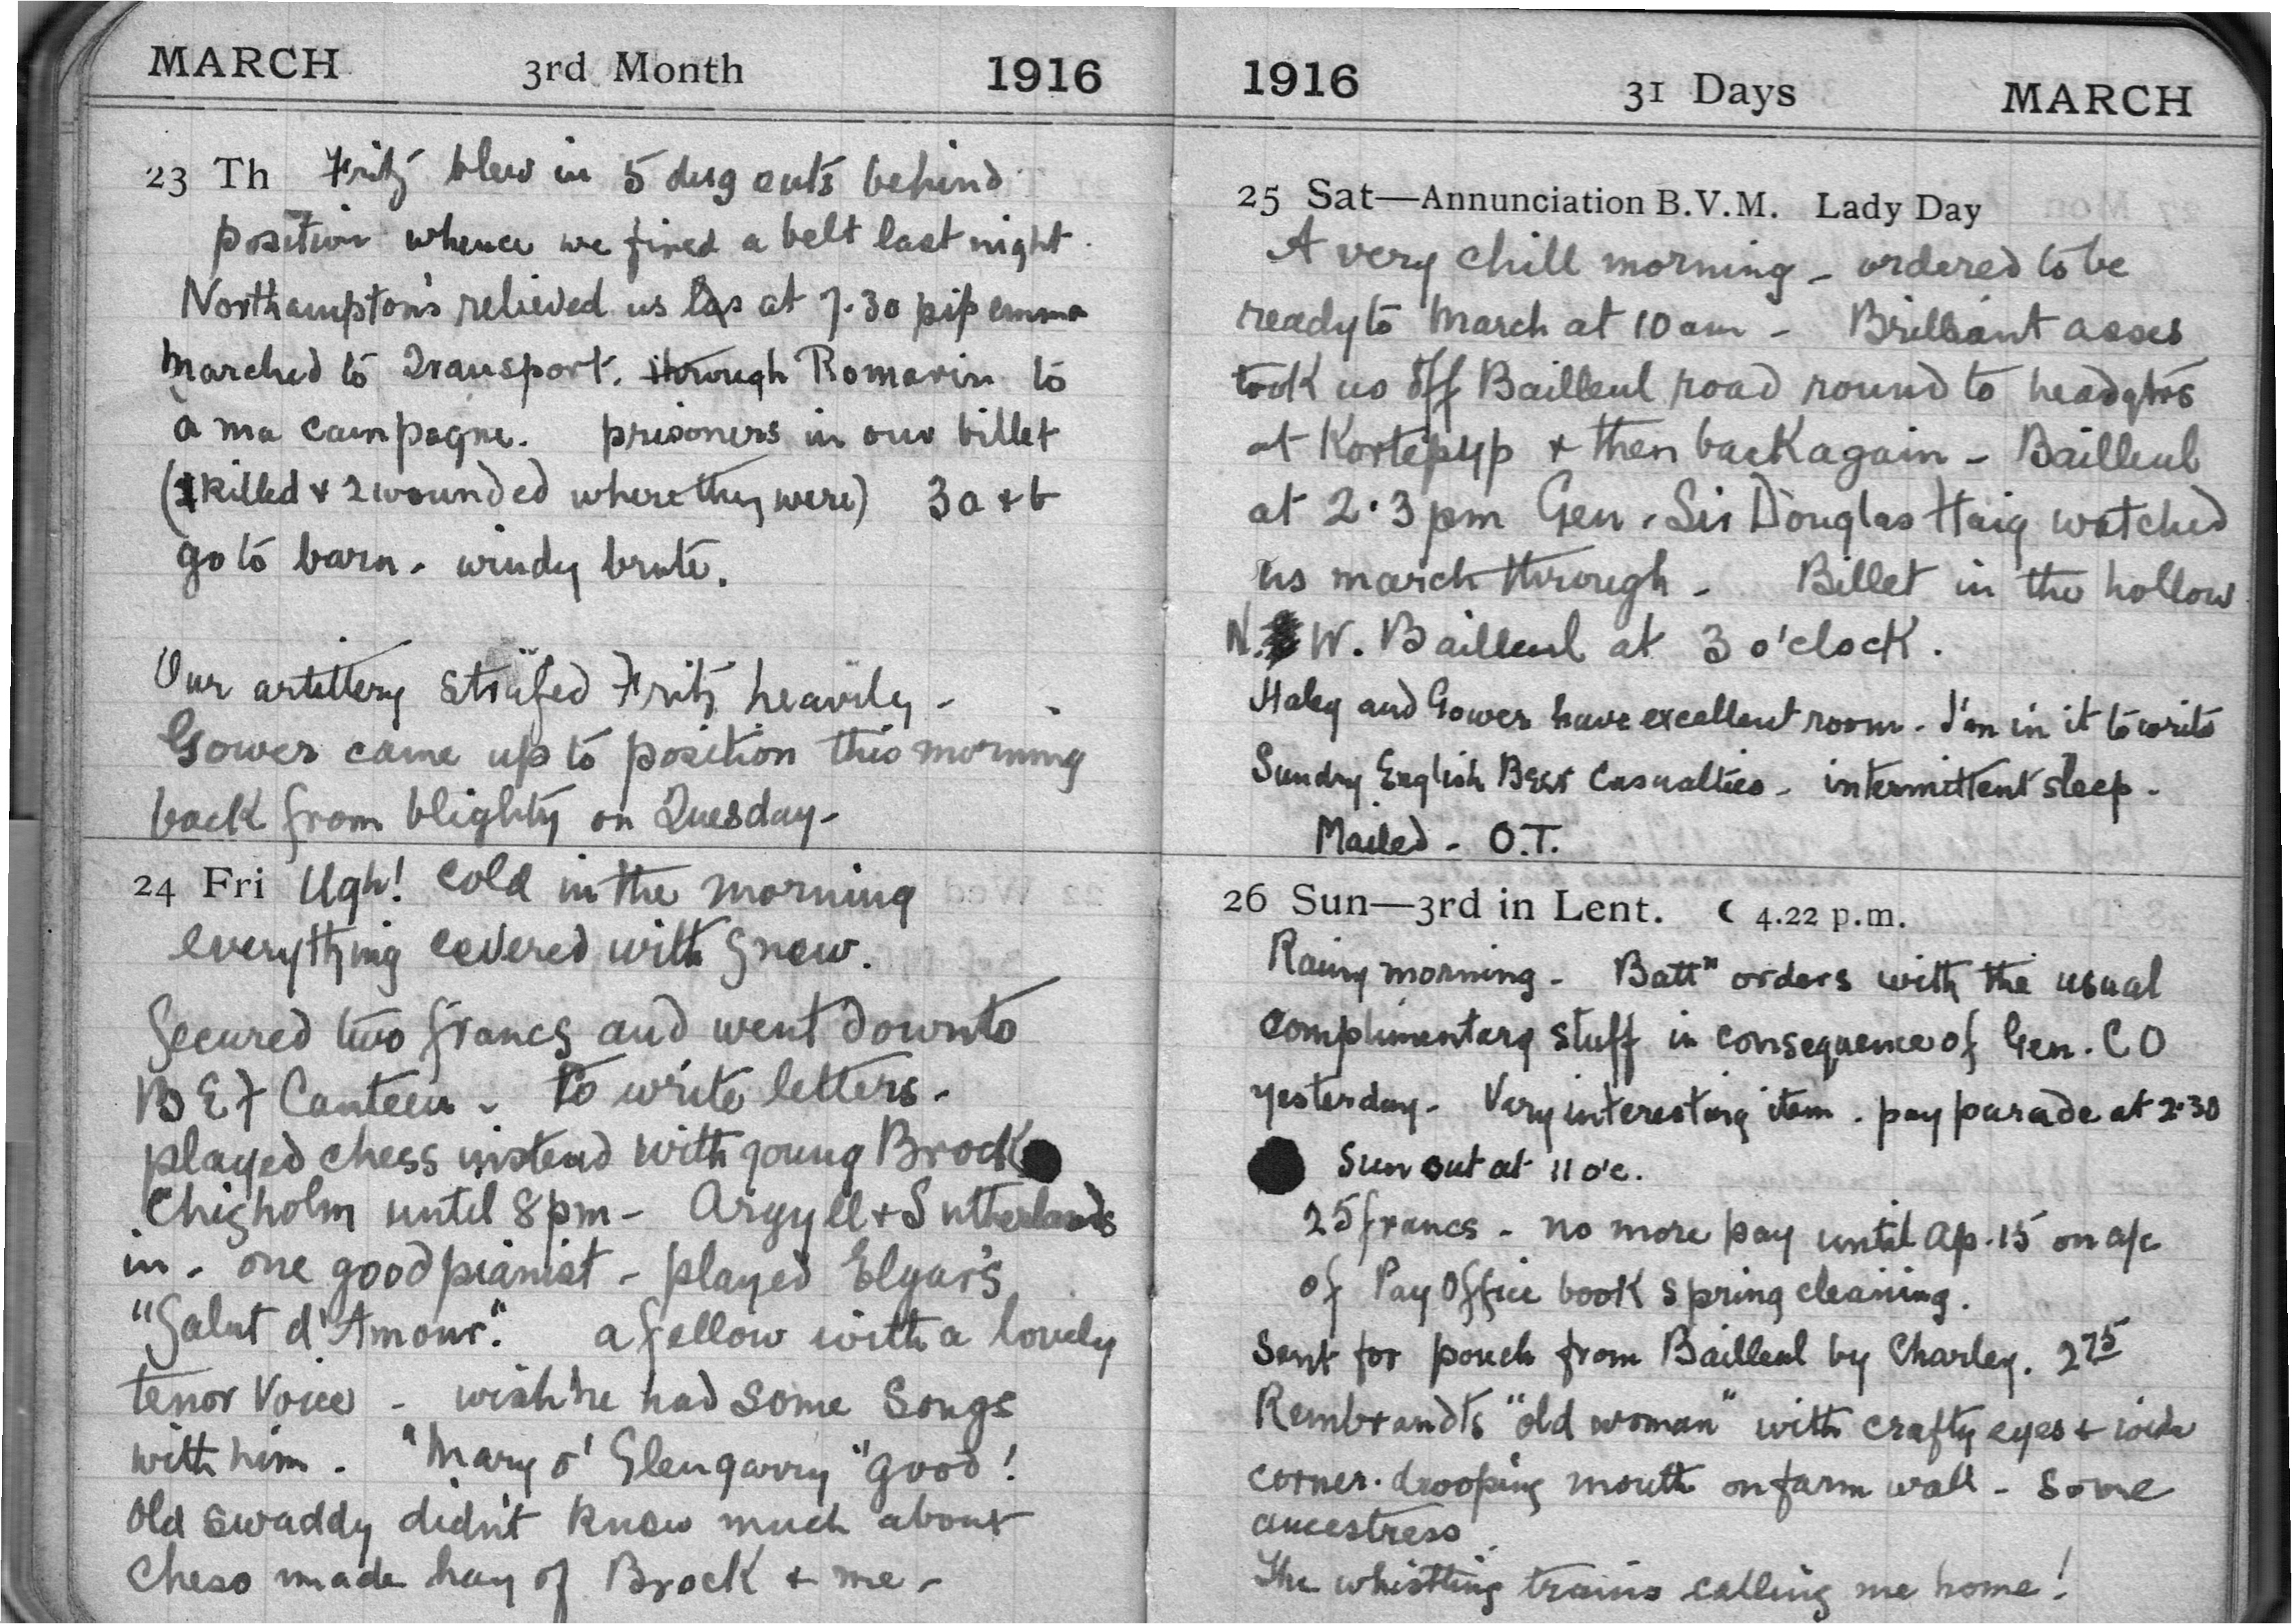 MARCH 3rd Month 1916
23 Th Fritz blew in 5 dug outs behind
position whence we fired a belt last night.
Northampton's relieved us las at 7.30 pip emma
Marched to Transport. through Romarin to
a ma campagne. prisoners in our billet
(1 killed & 2 wounded where they were) 3a & b
go to barn - windy brute.
Our artillery strafed Fritz heavily -
Gower came up to position this morning
back from blighty on Tuesday -
24 Fri Ugh! cold in the morning
everything covered with snow.
Secured two francs and went down to
B E F Canteen - to write letters -
played chess instead with young Brock
Chisholm until 8 pm - Argyll & Sutherlands
in - one good pianist - played Elgar's
"Salut d'Amour". a fellow with a lovely
tenor voice - wish he had some songs
with him. "Mary o' Glengarry" good!
Old swaddy didn't know much about
chess made hay of Brock & me -
1916 31 Days MARCH
25 Sat—Annunciation B.V.M. Lady Day
A very chill morning - ordered to be
ready to march at 10 am - Brilliant asses
took us off Bailleul road round to headqtrs
at Kortepyp & then back again - Bailleul
at 2.3 pm Gen. Sir Douglas Haig watched
us march through - Billet in the hollow
N. W. Bailleul at 3 o'clock.
Haley and Gower have excellent room - I'm in it to write
Sundry English Beer Casualties - intermittent sleep -
Mailed - O.T.
26 Sun—3rd in Lent. ☾ 4.22 p.m.
Rainy morning - Battn orders with the usual
complimentary stuff in consequence of Gen. C O
yesterday - Very interesting item. pay parade at 2.30
Sun out at 11 o'c.
25 francs - no more pay until Ap. 15 on a/c
of Pay Office book spring cleaning.
Sent for pouch from Bailleul by Charley. 2 75
Rembrandts "old woman" with crafty eyes & wide
corner-drooping mouth on farm wall - some
ancestress.
The whistling trains calling me home!